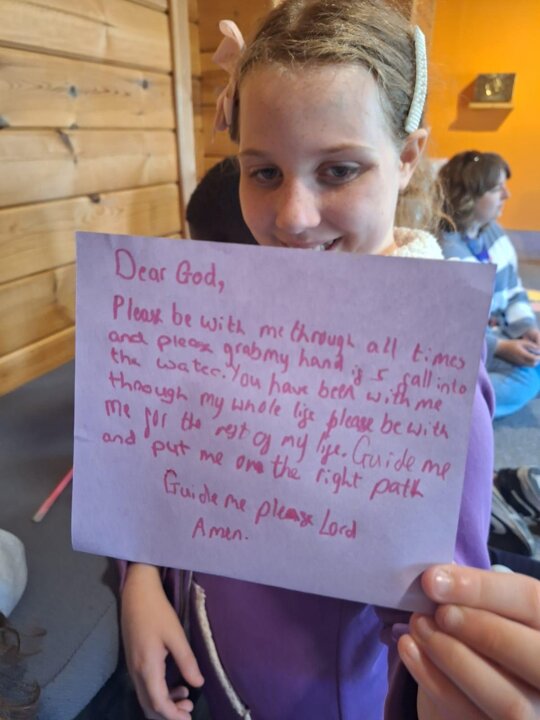 Dear God,
Please be with me through all times
and please grab my hand if I fall into
the water. You have been with me
through my whole life please be with
me for the rest of my life. Guide me
and put me on the right path
Guide me please Lord
Amen.